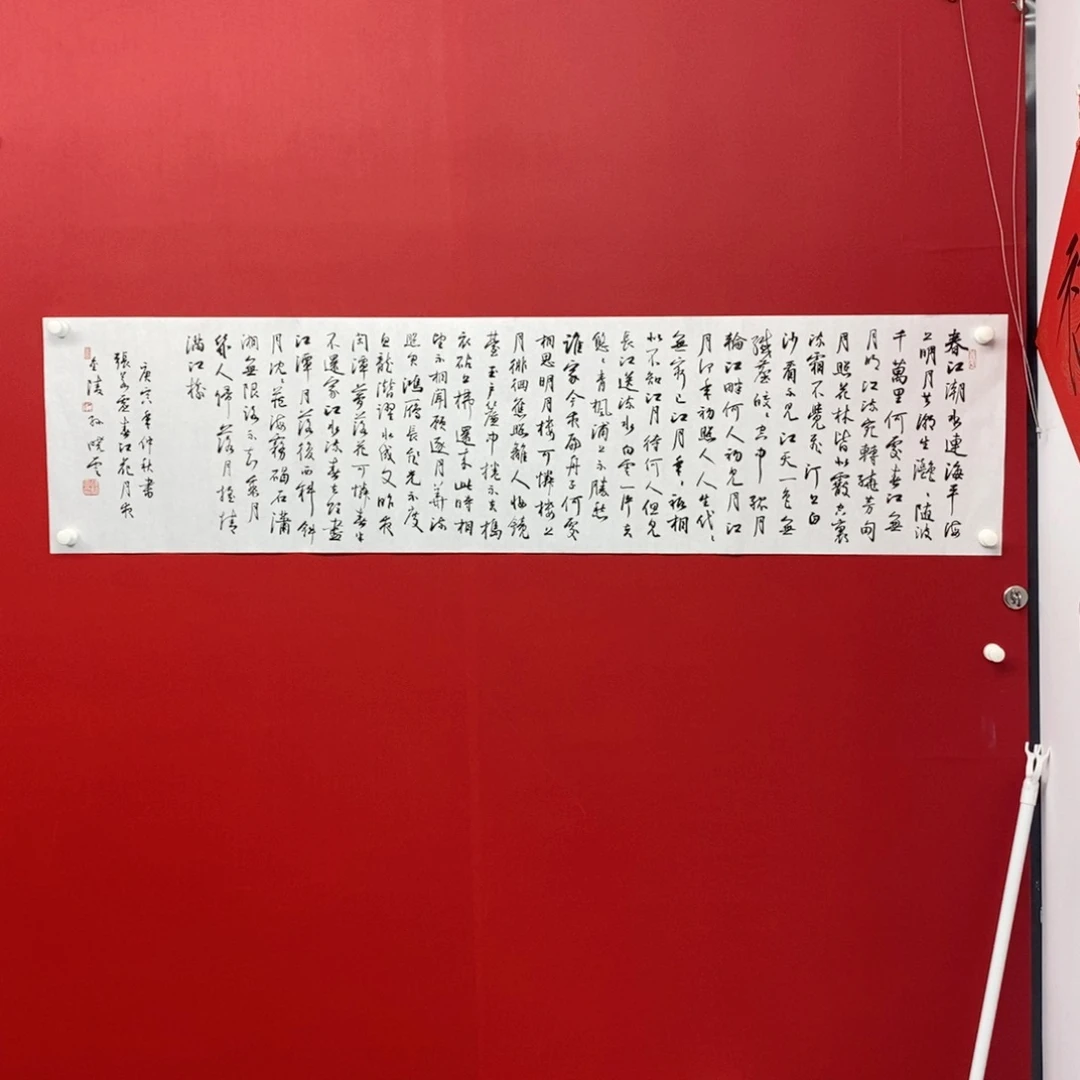 春江潮水連海平海
上明月共潮生灩〻随波
千萬里何處春江無
月明江流宛轉繞芳甸
月照花林皆似霰空裏
流霜不覺飛汀上白
沙看不見江天一色無
纖塵皎〻空中孤月
輪江畔何人初見月江
月何年初照人人生代〻
無窮已江月年〻祇相
似不知江月待何人但見
長江送流水白雲一片去
悠〻青楓浦上不勝愁
誰家今夜扁舟子何處
相思明月樓可憐樓上
月徘徊應照離人妝鏡
臺玉戶簾中捲不去搗
衣砧上拂還來此時相
望不相聞願逐月華流
照君鴻雁長飛光不度
魚龍潛躍水成文昨夜
閑潭夢落花可憐春半
不還家江水流春去欲盡
江潭月落復西斜斜
月沈〻藏海霧碣石瀟
湘無限路不知乘月
幾人歸落月搖情
滿江樹
庚寅年仲秋書
張若虛春江花月夜
金陵孫曉雲